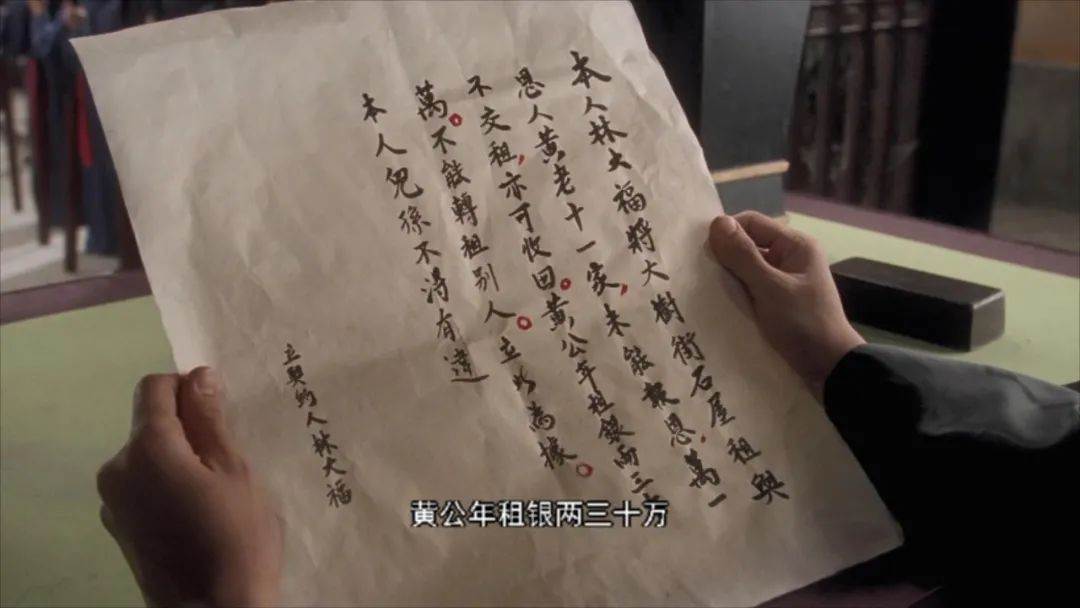 本人林大福將大樹街石屋租與
恩人黃老十一家，未能報恩，萬一
不交租，亦可收回。黃公年租銀兩三十
萬。不能轉租別人。立此為據。
本人兒孫不得有違
立契約人林大福
黄公年租银两三十万